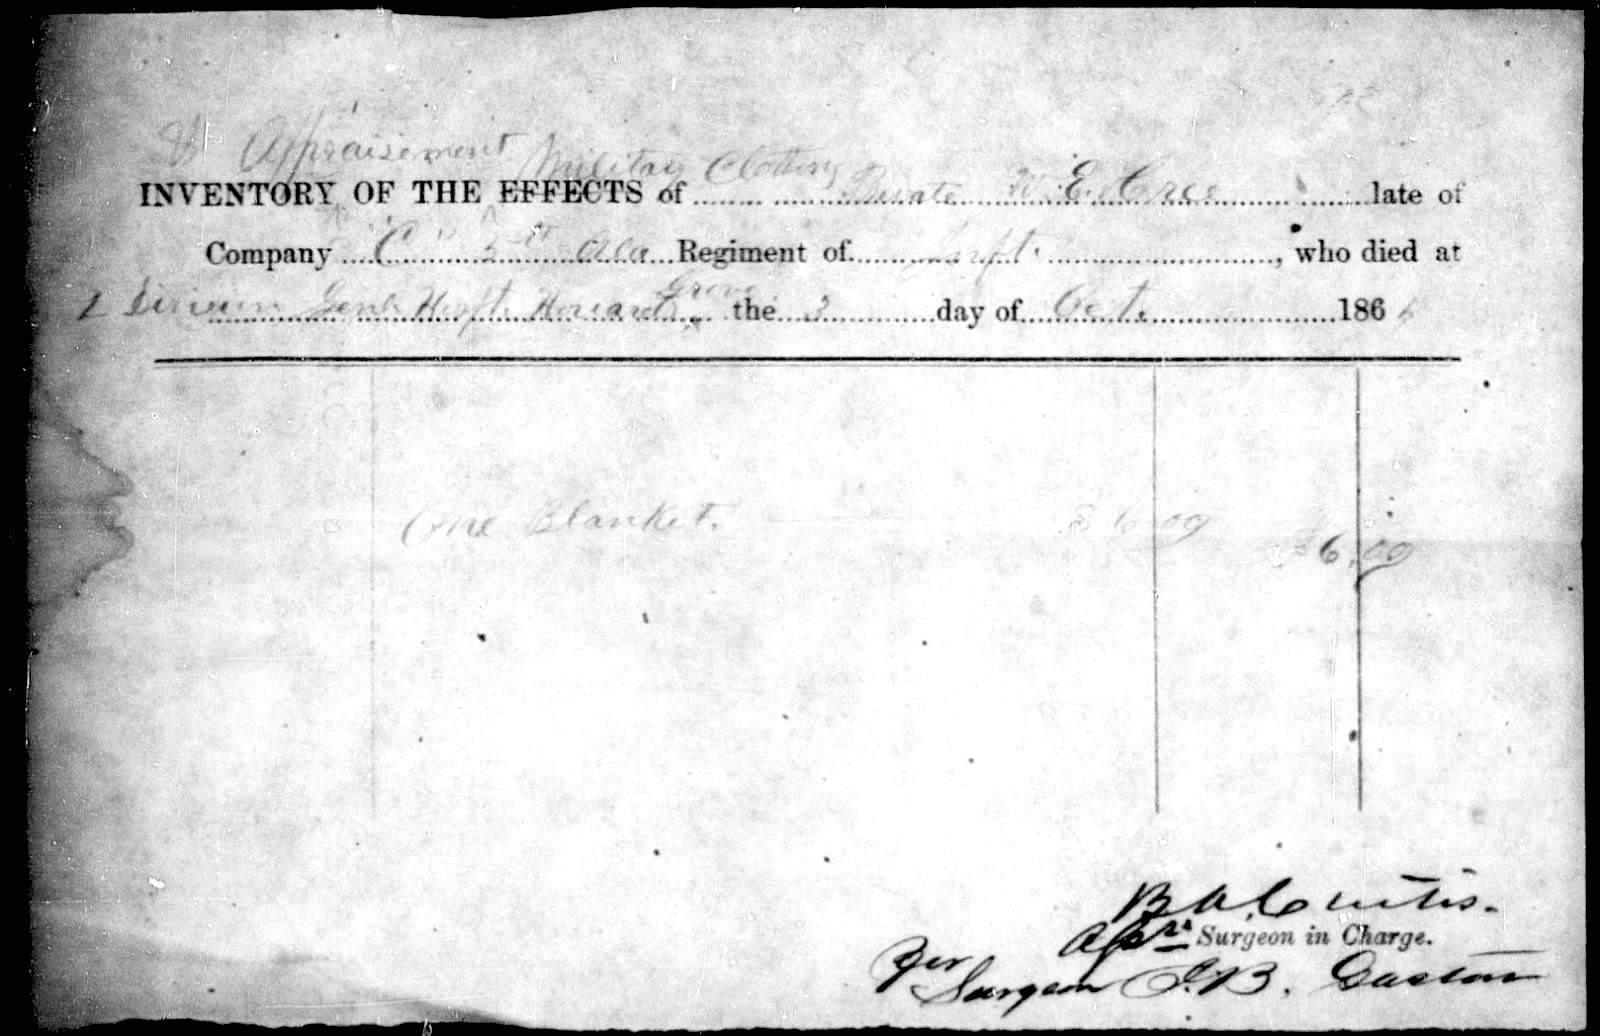 & Appraisement Military Clothing
INVENTORY OF THE EFFECTS of Private W. E. late of
Company "C" 5th Ala Regiment of Inft. , who died at
2 Division Genl. Hospt. Howard's Grove the 3 day of Oct. 186
One Blanket. $6.00 $6.00
B A Curtis.
Surgeon in Charge.
For
Surgeon J. B. Gaston